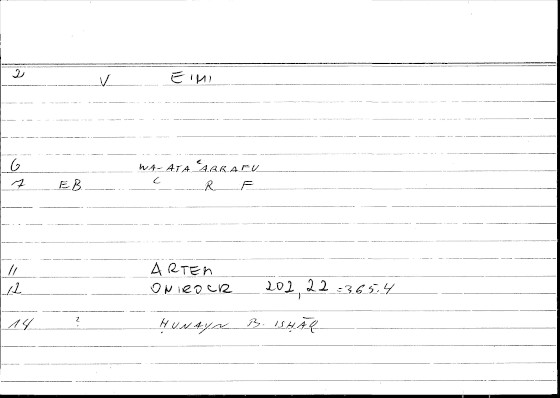 2 V EIMI
6 WA-ATA ʿARRAFU
7 EB ʿ R F
11 ARTEM
12 ONIROCR 202,22 =365.4
14 ? ḤUNAYN B. ISḤĀQ